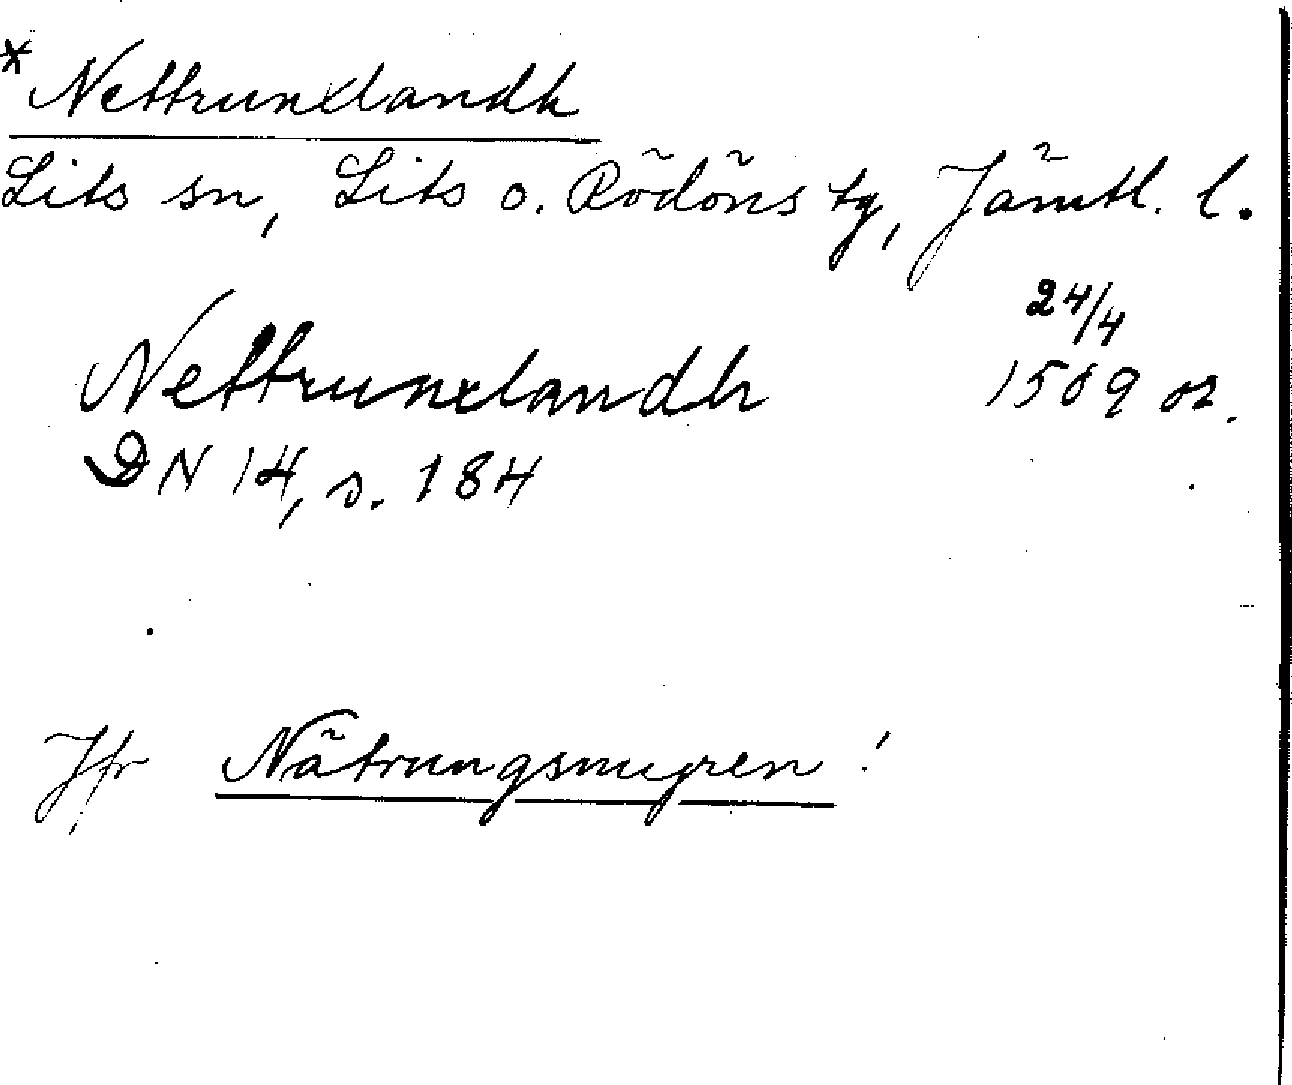 * Nettrunxlandh
Lits sn, Lits o. Rödöns tg, Jämtl. l.
24/4
Nettrunxlandh 1509 or.
DN 14, s. 184
Jfr Nätrungsmyren!